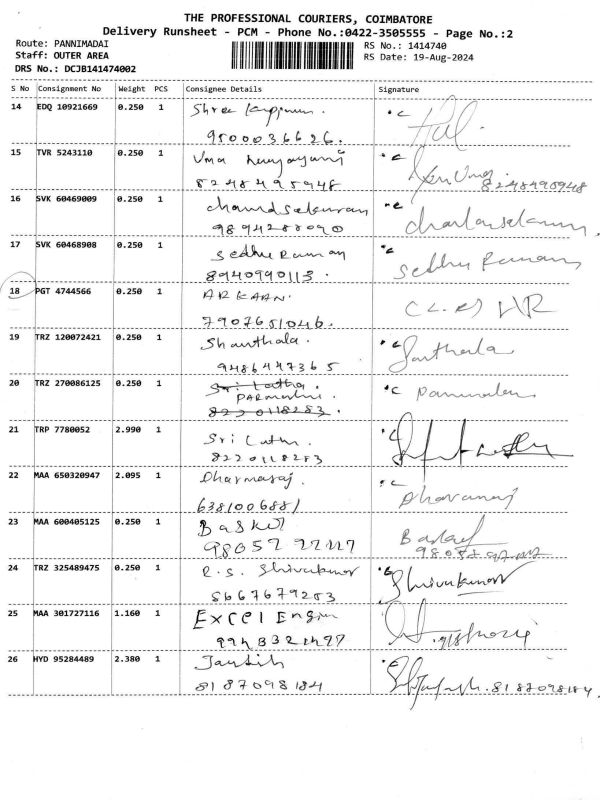 THE PROFESSIONAL COURIERS, COIMBATORE
Delivery Runsheet - PCM - Phone No.:0422-3505555 - Page No.:2
Route: PANNIMADAI RS No.: 1414740
Staff: OUTER AREA RS Date: 19-Aug-2024
DRS No.: DCJB141474002
S No Consignment No Weight PCS Consignee Details Signature
14 EDQ 10921669 0.250 1 Shree
9500036626.
15 TVR 5243110 0.250 1 Uma
8248495948 8248490948
16 SVK 60469009 0.250 1 chandsekaran
9894288090
17 SVK 60468908 0.250 1 Sedhu Raman Sedhu Raman
8940990113.
18 PGT 4744566 0.250 1 ARKAAN.
7907651046.
19 TRZ 120072421 0.250 1 Shanthala. Santhala
9486447365
20 TRZ 270086125 0.250 1 Sri Latha.
8220118283.
21 TRP 7780052 2.990 1 Sri Latha.
8220118283
22 MAA 650320947 2.095 1 Dharmaraj.
6381006881
23 MAA 600405125 0.250 1 Basker
24 TRZ 325489475 0.250 1 R.S. Shivakumar Shivakumar
5667679283
25 MAA 301727116 1.160 1 Excel Engin
26 HYD 95284489 2.380 1
8187098184 8187098184